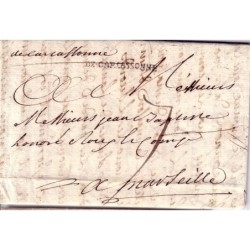 de carcassonne
DE CARCASSONNE
Messieurs
Messieurs jean
honoré Roux et Comp
7
a marseille